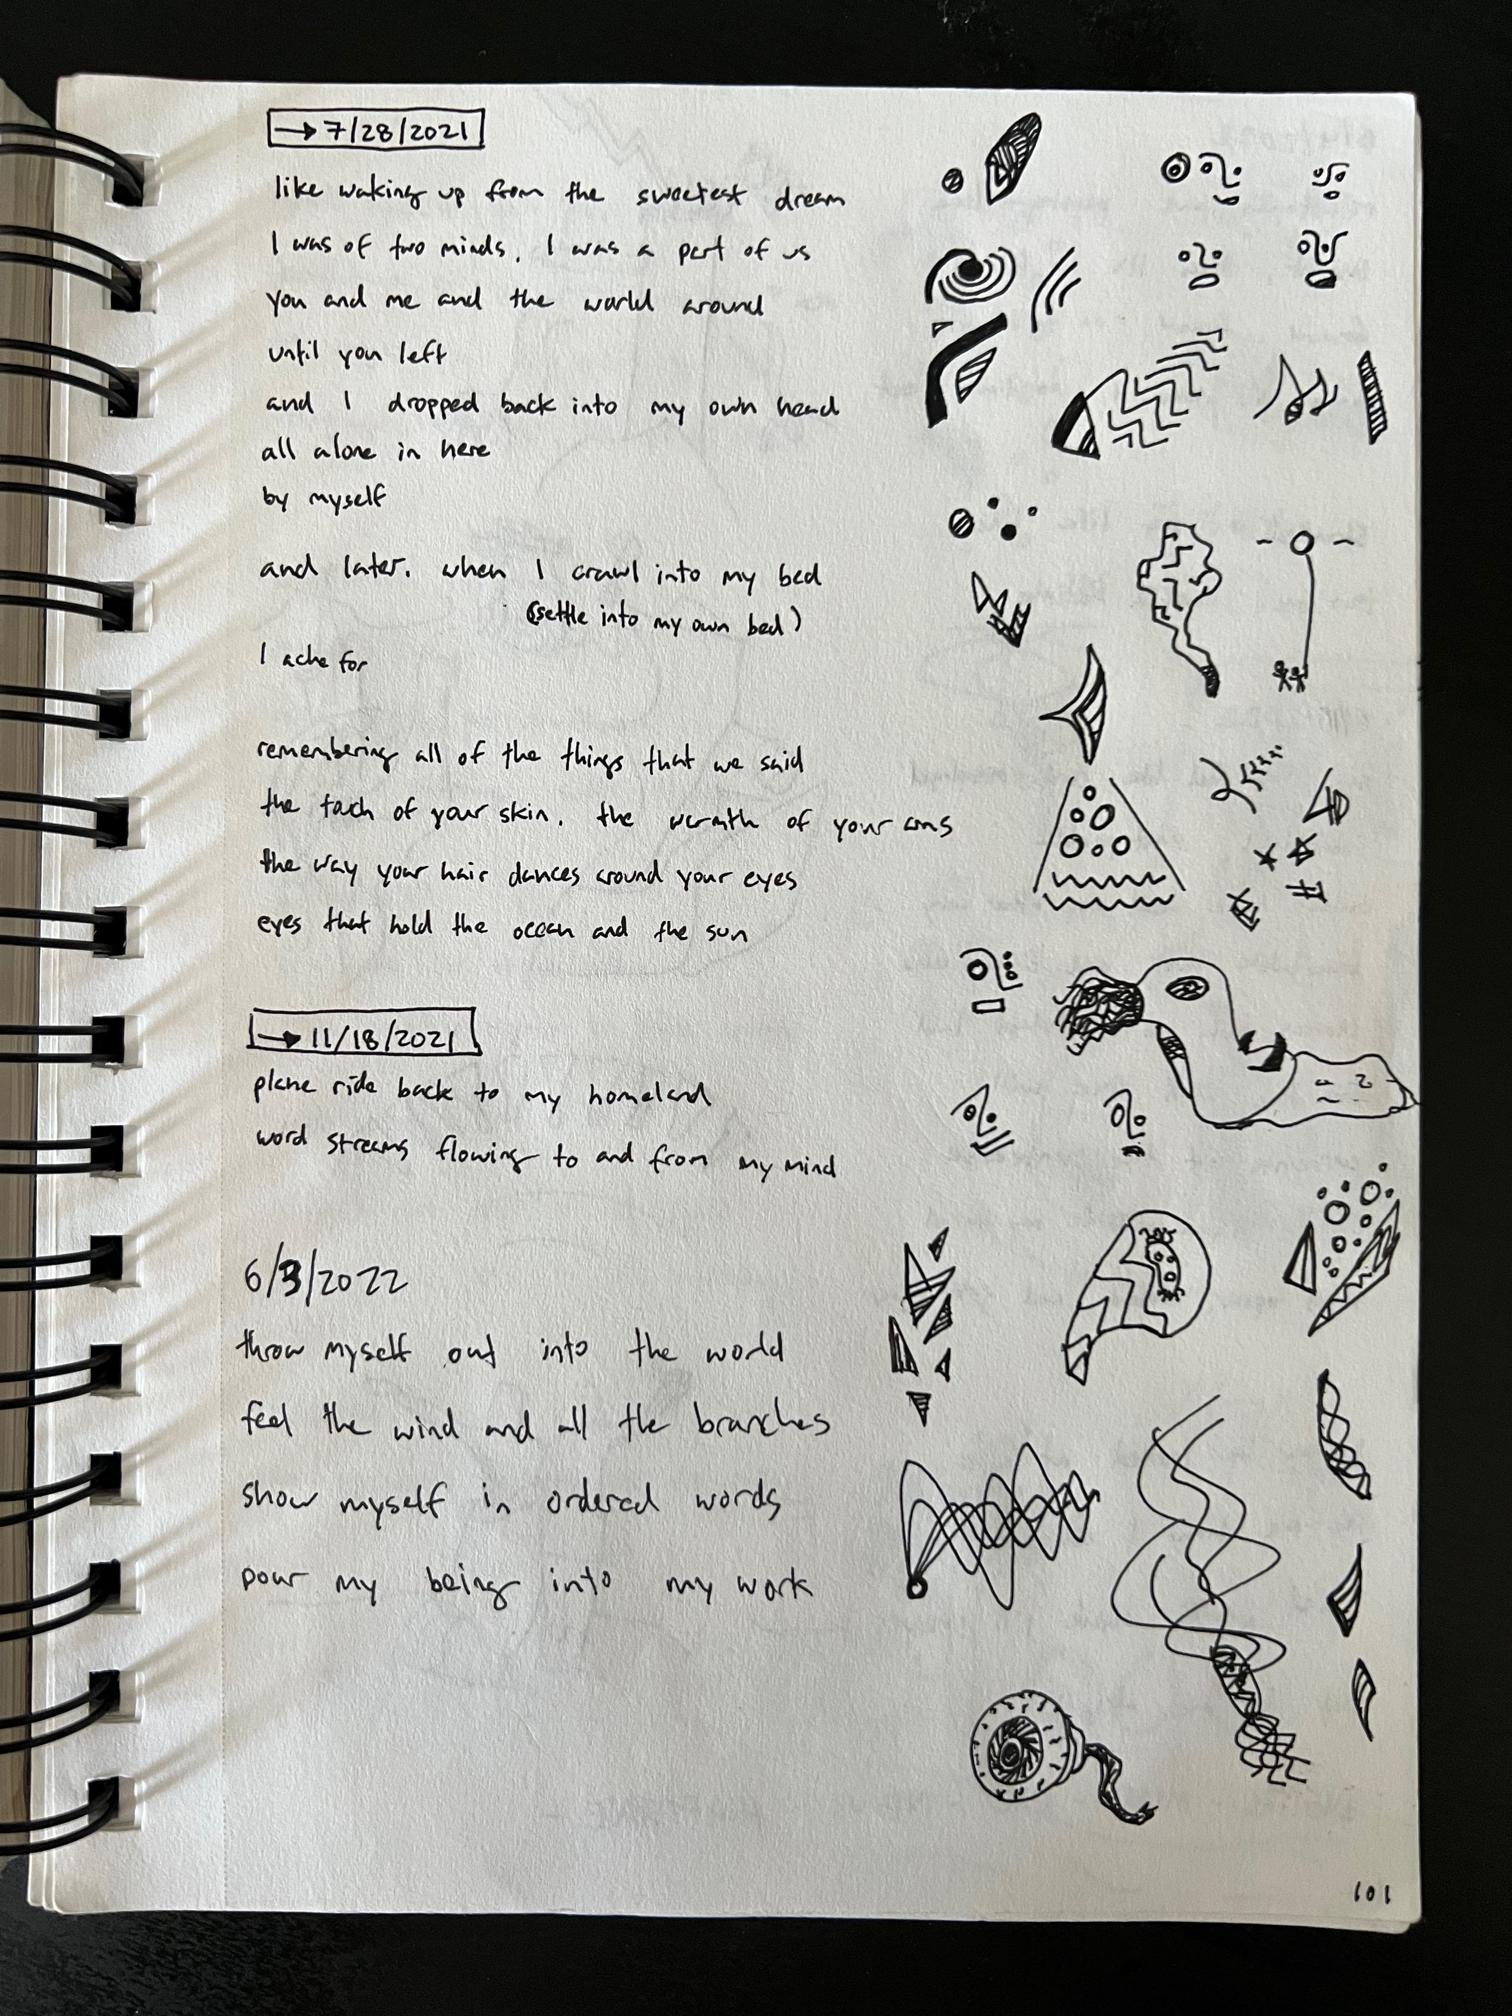 → 7/28/2021
like waking up from the sweetest dream
I was of two minds, I was a part of us
you and me and the world around
until you left
and I dropped back into my own head
all alone in here
by myself
and later, when I crawl into my bed
(settle into my own bed)
I ache for
remembering all of the things that we said
the touch of your skin, the warmth of your arms
the way your hair dances around your eyes
eyes that hold the ocean and the sun
→ 11/18/2021
plane ride back to my homeland
word streams flowing to and from my mind
6/3/2022
throw myself out into the world
feel the wind and all the branches
show myself in ordered words
pour my being into my work
101